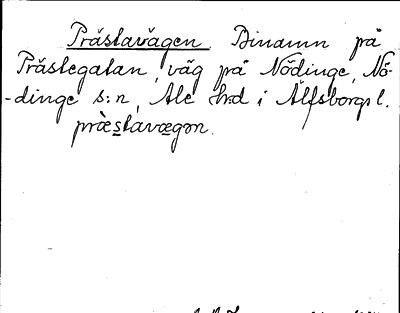 Prästavägen Binamn på
Prästegatan, väg på Nödinge, Nö-
-dinge s:n, Ale hrd i Älfsborgs l.
præ̀stavægən.